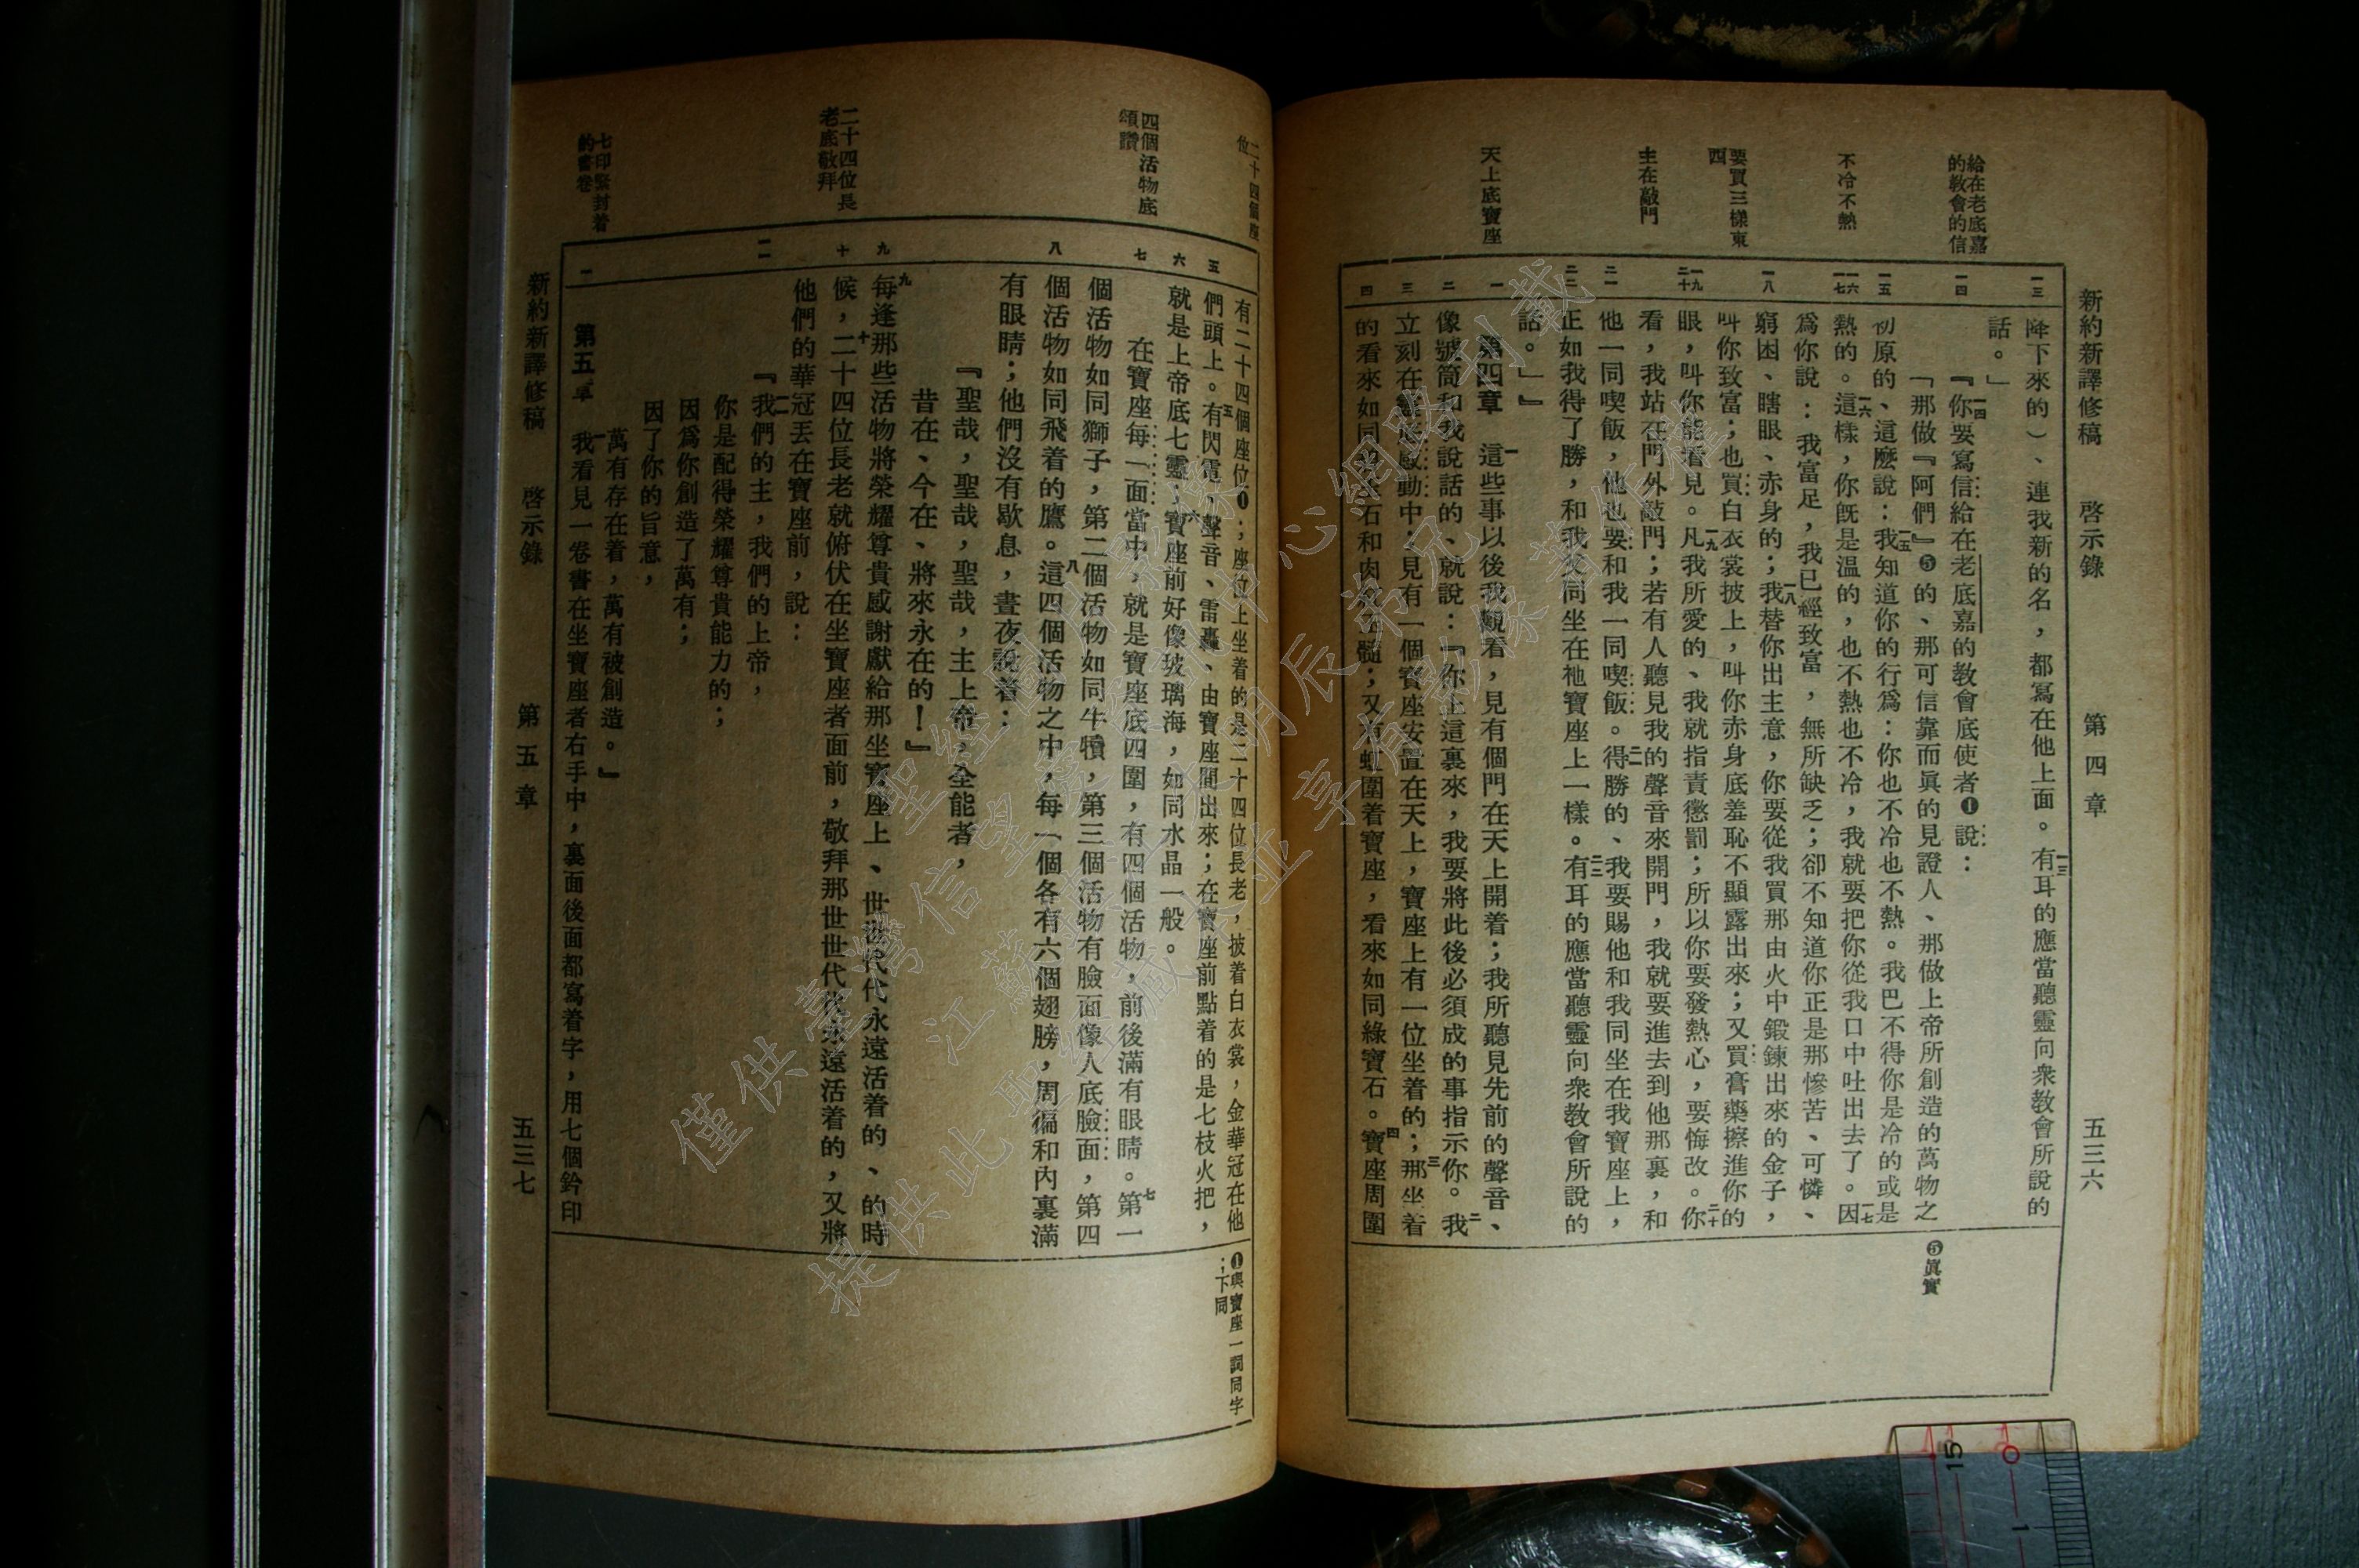 新約新譯修稿 啓示錄 第四章 五三六
給在老底嘉
的教會的信
不冷不熱
要買三樣東
西
主在敲門
天上底寶座
一三
一四
一五
一六
一七
一八
一九
二十
二一
二二
一
二
三
四
降下來的)、連我新的名,都寫在他上面。一三有耳的應當聽靈向衆教會所說的
話。」
『一四你要寫信給在老底嘉的教會底使者❶說:
「那做『阿們』❺的、那可信靠而眞的見證人、那做上帝所創造的萬物之
初原的、這麼說:一五我知道你的行爲:你也不冷也不熱。我巴不得你是冷的或是
熱的。一六這樣,你旣是溫的,也不熱也不冷,我就要把你從我口中吐出去了。一七因
爲你說:我富足,我已經致富,無所缺乏;卻不知道你正是那慘苦、可憐、
窮困、瞎眼、赤身的;一八我替你出主意,你要從我買那由火中鍛鍊出來的金子,
叫你致富;也買白衣裳披上,叫你赤身底羞恥不顯露出來;又買膏藥擦進你的
眼,叫你能看見。一九凡我所愛的、我就指責懲罰;所以你要發熱心,要悔改。二十你
看,我站在門外敲門;若有人聽見我的聲音來開門,我就要進去到他那裏,和
他一同喫飯,他也要和我一同喫飯。二一得勝的、我要賜他和我同坐在我寶座上,
正如我得了勝,和我父同坐在祂寶座上一樣。二二有耳的應當聽靈向衆教會所說的
話。」』
第四章 一這些事以後我觀看,見有個門在天上開着;我所聽見先前的聲音、
像號筒和我說話的、就說:『你上這裏來,我要將此後必須成的事指示你。』二我
立刻在靈感動中:見有一個寶座安置在天上,寶座上有一位坐着的;三那坐着
的看來如同碧玉石和肉紅玉髓;又有虹圍着寶座,看來如同綠寶石。四寶座周圍
❺眞實
二十四個座
位
四個活物底
頌讚
二十四位長
老底敬拜
七印緊封着
的書卷
五
六
七
八
九
十
一一
一
有二十四個座位❶;座位上坐着的是二十四位長老,披着白衣裳,金華冠在他
們頭上。五有閃電、聲音、雷轟、由寶座間出來;在寶座前點着的是七枝火把,
就是上帝底七靈;六寶座前好像玻璃海,如同水晶一般。
在寶座每一面當中,就是寶座底四圍,有四個活物,前後滿有眼睛。七第一
個活物如同獅子,第二個活物如同牛犢,第三個活物有臉面像人底臉面,第四
個活物如同飛着的鷹。八這四個活物之中,每一個各有六個翅膀,周徧和內裏滿
有眼睛;他們沒有歇息,晝夜說着:
『聖哉,聖哉,聖哉,主上帝,全能者,
昔在、今在、將來永在的!』
九每逢那些活物將榮耀尊貴感謝獻給那坐寶座上、世世代代永遠活着的、的時
候,十二十四位長老就俯伏在坐寶座者面前,敬拜那世世代代永遠活着的,又將
他們的華冠丟在寶座前,說:
『一一我們的主,我們的上帝,
你是配得榮耀尊貴能力的;
因爲你創造了萬有;
因了你的旨意,
萬有存在着,萬有被創造。』
第五章 一我看見一卷書在坐寶座者右手中,裏面後面都寫着字,用七個鈐印
❶與寶座一詞同字
;下同
新約新譯修稿 啓示錄 第五章 五三七
15
0
1